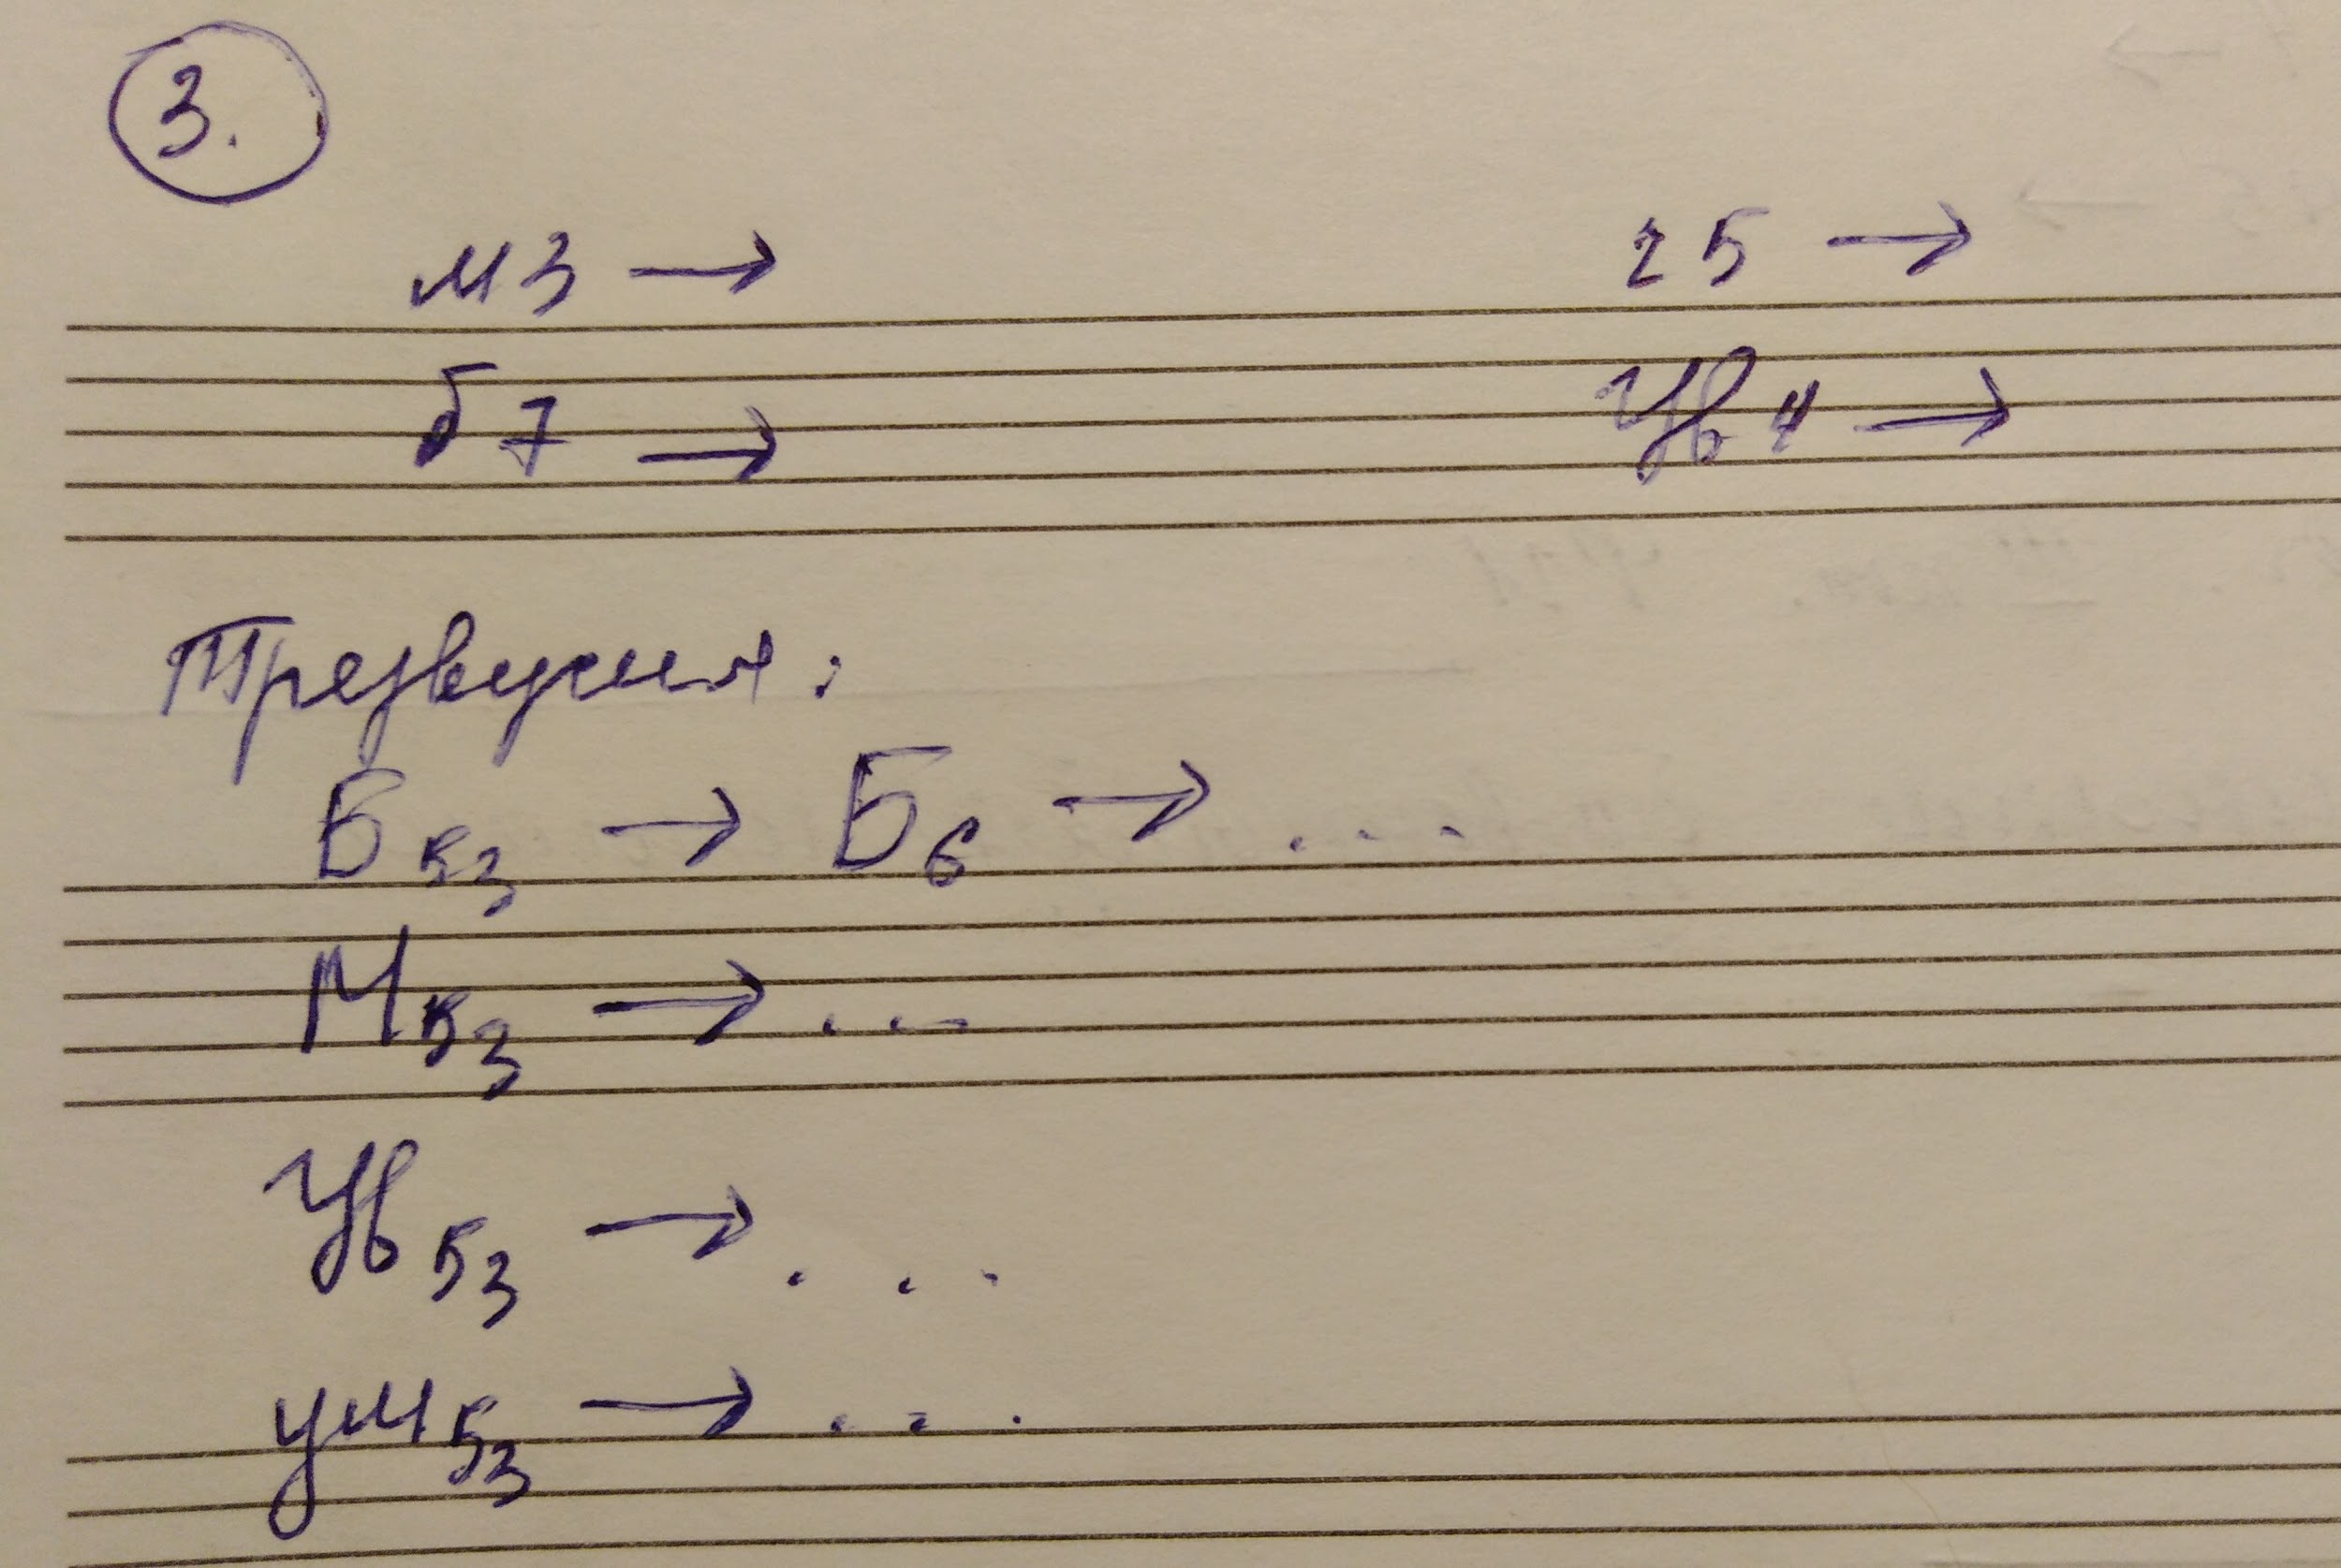 3.
м3 → ч5 →
б7 → Ув4 →
Трезвучия:
Б53 → Б6 → ...
М53 → ...
Ув53 → ...
ум53 → ...